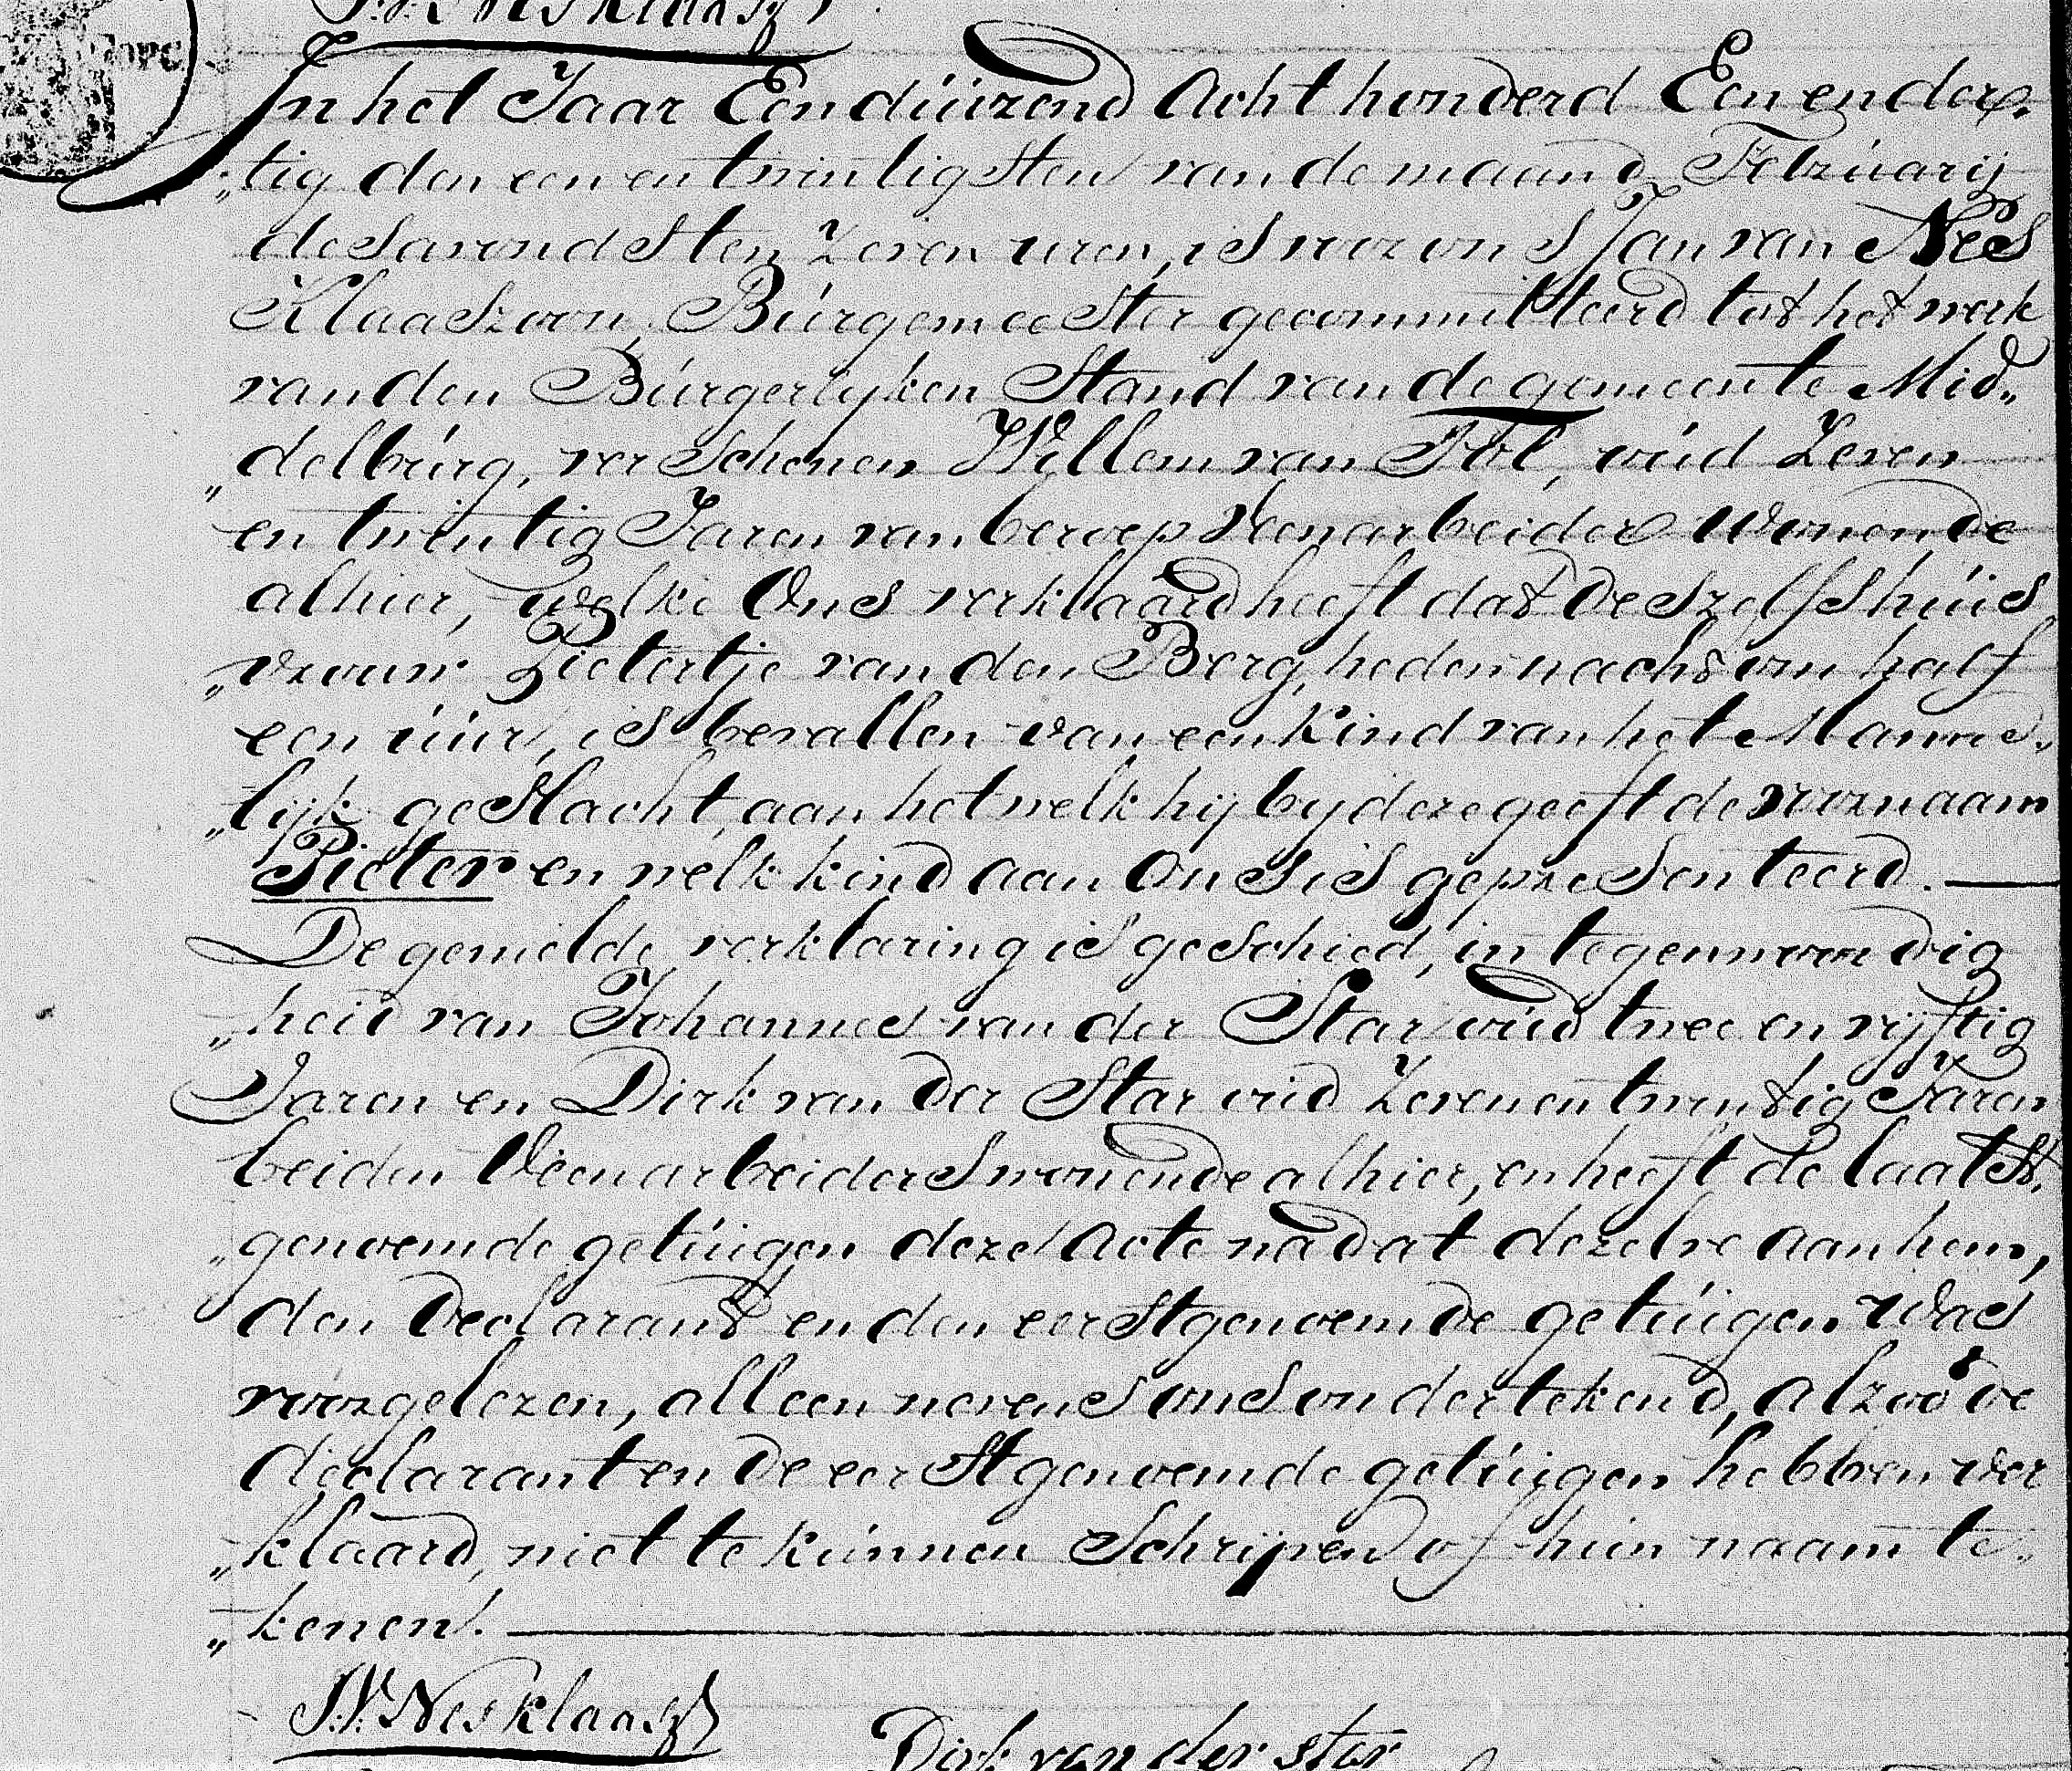 J.V. Nes Klaasz
In het Jaar Een duizend Acht honderd Een en der„
„tig den een en twintigsten van de maand Februarij
des avonds ten Zeven uren, is voor ons Jan van Nes
Klaaszoon, Burgemeester gecommitteerd tot het werk
van den Burgerlijken Stand van de gemeente Mid„
„delburg, verschenen Willem van Tol, oud Zeven
en twintig Jaren van beroep Veenarbeider wonende
alhier, welke Ons verklaard heeft dat deszelfs huis
„vrouw Pietertje van den Berg, heden nacht om half
een uur, is bevallen van een Kind van het Manne„
„lijk geslacht, aan het welk hij by deze geeft de voornaam
Pieter en welk kind aan Ons is gepresenteerd. —
De gemelde verklaring is geschied, in tegenwoordig
„heid van Johannes van der Star oud twee en vijftig
Jaren en Dirk van der Star oud Zeven en twintig Jaren
beiden Veenarbeiders wonende alhier, en heeft de laatst„
„genoemde getuigen deze Acte nadat dezelve aan hem,
den Declarant en den eerstgenoemde getuigen was
voorgelezen, alleen nevens ons ondertekend, alzoo de
declarant en de eerstgenoemde getuigen hebben ver
„klaard, niet te kunnen Schrijven of hun naam te„
„kenen. —
J.V. Nes Klaasz
Dirk van der star